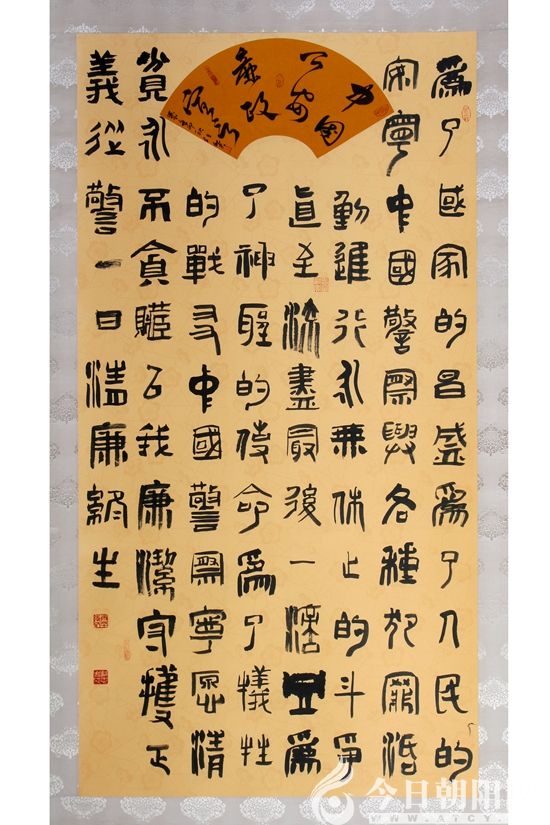 中國
公安
廉政
爲了國家的昌盛爲了人民的
安寧中國警察與各種犯罪活
動進行永無休止的斗爭
直至流盡最後一滴血爲
了神聖的使命爲了犧牲
的戰友中國警察寧愿清
貧永不貪贓以我廉潔守護正
義從警一日清廉終生
今日朝阳